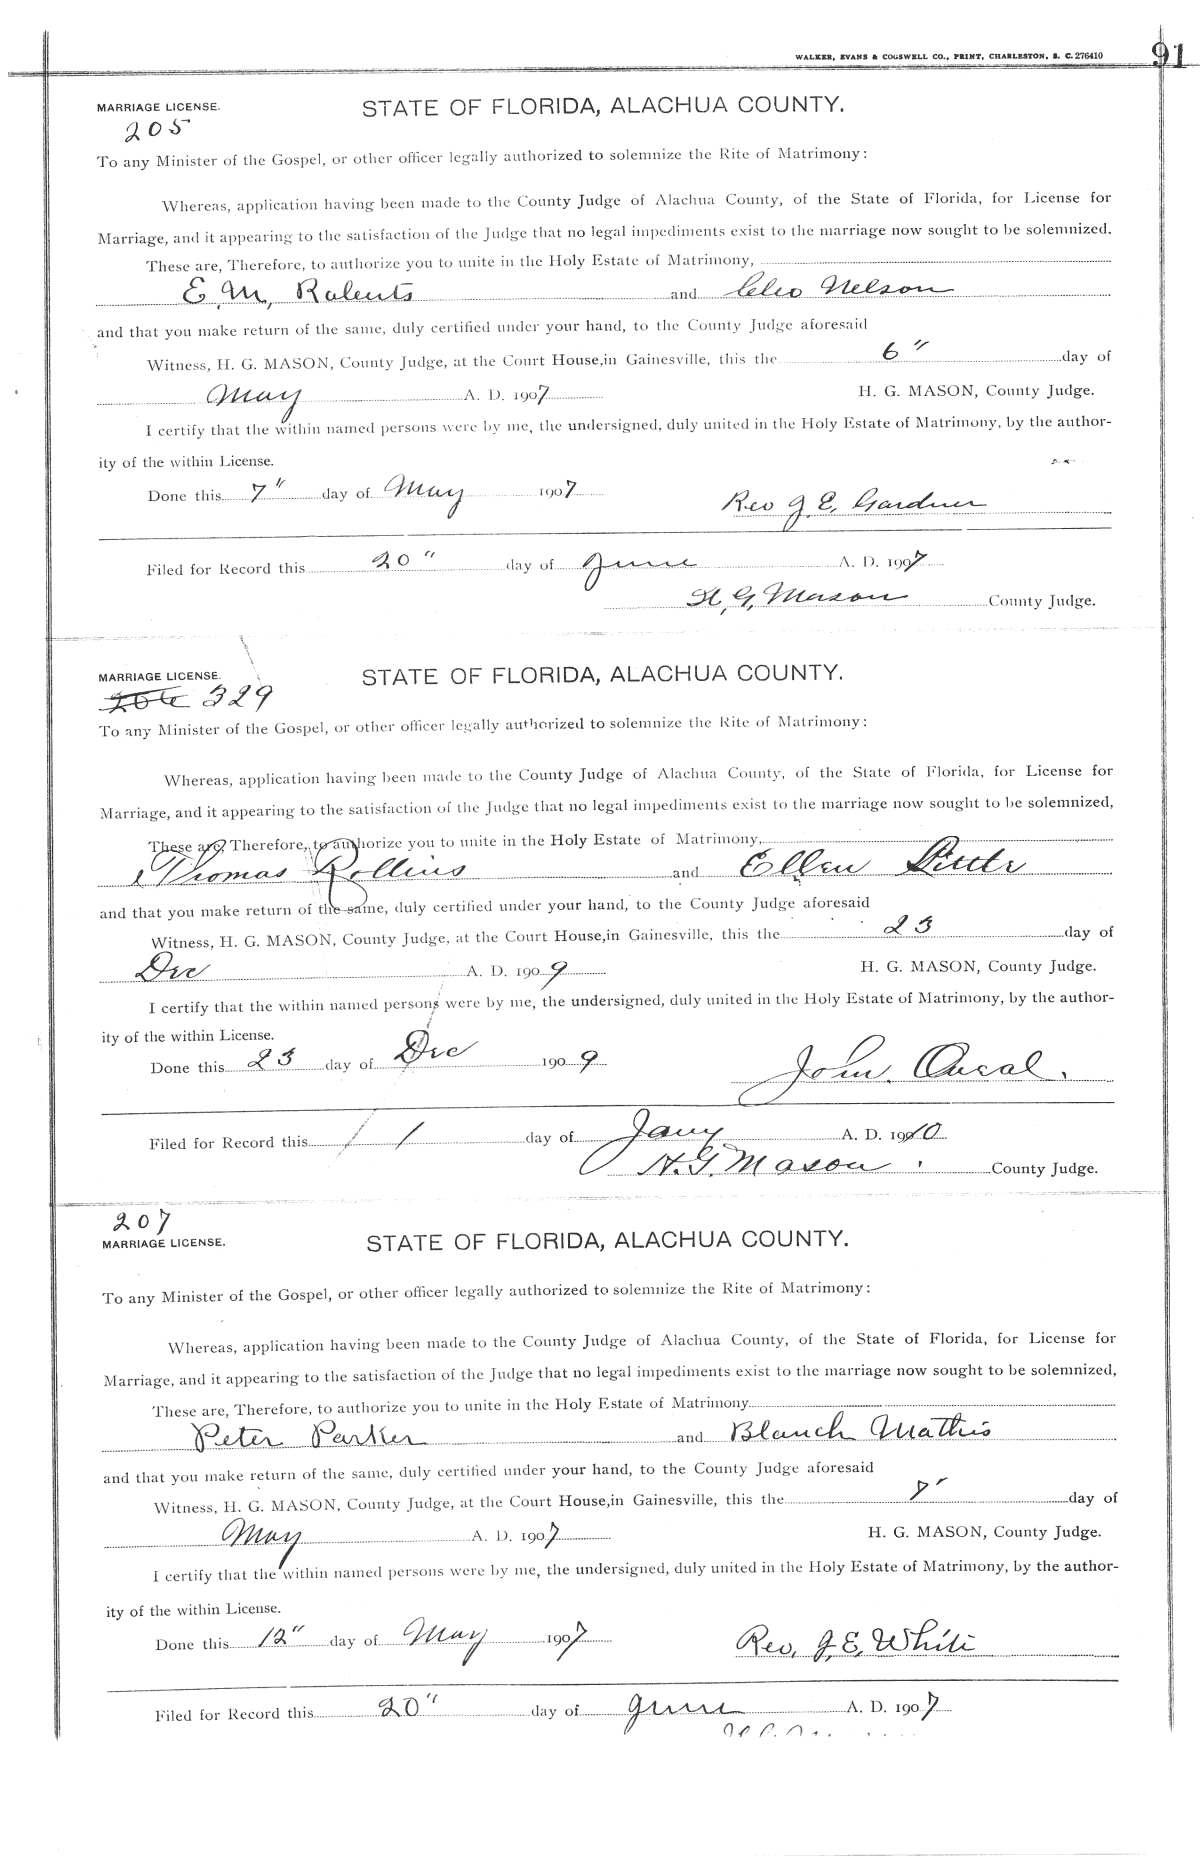 WALKER, EVANS & COGSWELL CO., PRINT, CHARLESTON, S. C. 276410
91
MARRIAGE LICENSE.
STATE OF FLORIDA, ALACHUA COUNTY.
205
To any Minister of the Gospel, or other officer legally authorized to solemnize the Rite of Matrimony:
Whereas, application having been made to the County Judge of Alachua County, of the State of Florida, for License for
Marriage, and it appearing to the satisfaction of the Judge that no legal impediments exist to the marriage now sought to be solemnized.
These are, Therefore, to authorize you to unite in the Holy Estate of Matrimony,
E. M, Roberts and Cleo Nelson
and that you make return of the same, duly certified under your hand, to the County Judge aforesaid
Witness, H. G. MASON, County Judge, at the Court House, in Gainesville, this the 6" day of
May A. D. 1907 H. G. MASON, County Judge.
I certify that the within named persons were by me, the undersigned, duly united in the Holy Estate of Matrimony, by the author-
ity of the within License.
Done this 7" day of May 1907
Rev J E, Gardner
Filed for Record this 20" day of June A. D. 1907
H, G, Mason County Judge.
MARRIAGE LICENSE.
STATE OF FLORIDA, ALACHUA COUNTY.
206 329
To any Minister of the Gospel, or other officer legally authorized to solemnize the Rite of Matrimony:
Whereas, application having been made to the County Judge of Alachua County, of the State of Florida, for License for
Marriage, and it appearing to the satisfaction of the Judge that no legal impediments exist to the marriage now sought to be solemnized,
These are, Therefore, to authorize you to unite in the Holy Estate of Matrimony,
Thomas Rollins and Ellen
and that you make return of the same, duly certified under your hand, to the County Judge aforesaid
Witness, H. G. MASON, County Judge, at the Court House, in Gainesville, this the 23 day of
Dec A. D. 1909 H. G. MASON, County Judge.
I certify that the within named persons were by me, the undersigned, duly united in the Holy Estate of Matrimony, by the author-
ity of the within License.
Done this 23 day of Dec 1909
John.
Filed for Record this 1 day of Jany A. D. 1910
H. G. Mason County Judge.
207
MARRIAGE LICENSE.
STATE OF FLORIDA, ALACHUA COUNTY.
To any Minister of the Gospel, or other officer legally authorized to solemnize the Rite of Matrimony:
Whereas, application having been made to the County Judge of Alachua County, of the State of Florida, for License for
Marriage, and it appearing to the satisfaction of the Judge that no legal impediments exist to the marriage now sought to be solemnized,
These are, Therefore, to authorize you to unite in the Holy Estate of Matrimony
Peter Parker and Blanch Mathis
and that you make return of the same, duly certified under your hand, to the County Judge aforesaid
Witness, H. G. MASON, County Judge, at the Court House, in Gainesville, this the 7" day of
May A. D. 1907 H. G. MASON, County Judge.
I certify that the within named persons were by me, the undersigned, duly united in the Holy Estate of Matrimony, by the author-
ity of the within License.
Done this 12" day of May 1907
Rev, J, E, White
Filed for Record this 20" day of June A. D. 1907